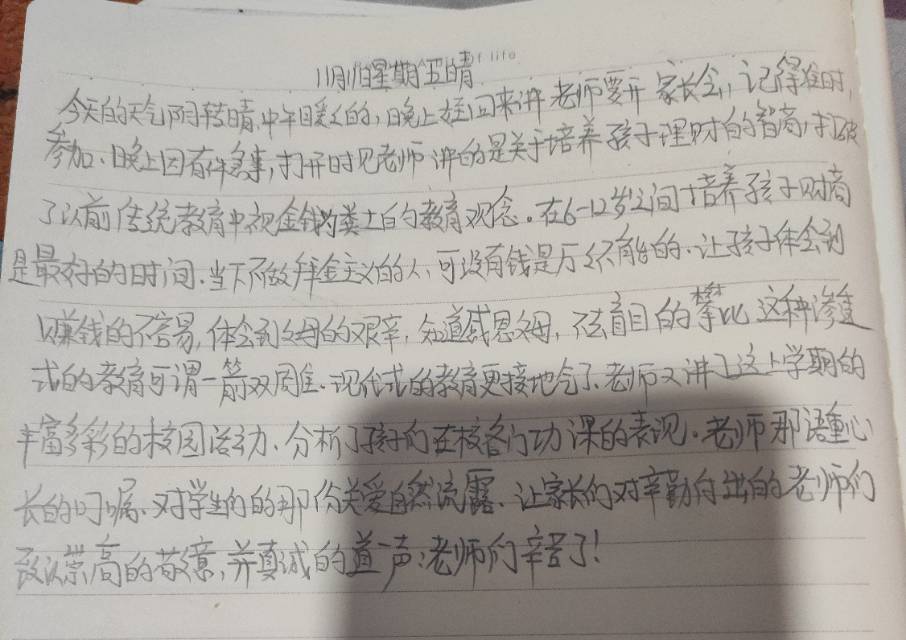 f life
11月11日星期五晴
今天的天气阴转晴,中午暖暖的,晚上娃回来讲老师要开家长会,记得准时,
参加、晚上因有件急事,打开时见老师讲的是关于培养孩子理财的智商,打破
了以前传统教育中视金钱为粪土的教育观念。在6-12岁之间培养孩子财商
是最好的时间.当下不做拜金主义的人,可没有钱是万万不能的.让孩子体会到
赚钱的不容易,体会到父母的艰辛,知道感恩父母,不去盲目的攀比 这种渗透
式的教育可谓一箭双雕.现代式的教育更接地气了.老师又讲了这上学期的
丰富多彩的校园活动、分析了孩子们在校各门功课的表现.老师那语重心
长的叮嘱、对学生们的那份关爱自然流露、让家长们对辛勤付出的老师们
致以崇高的敬意,并真诚的道一声:老师们辛苦了!